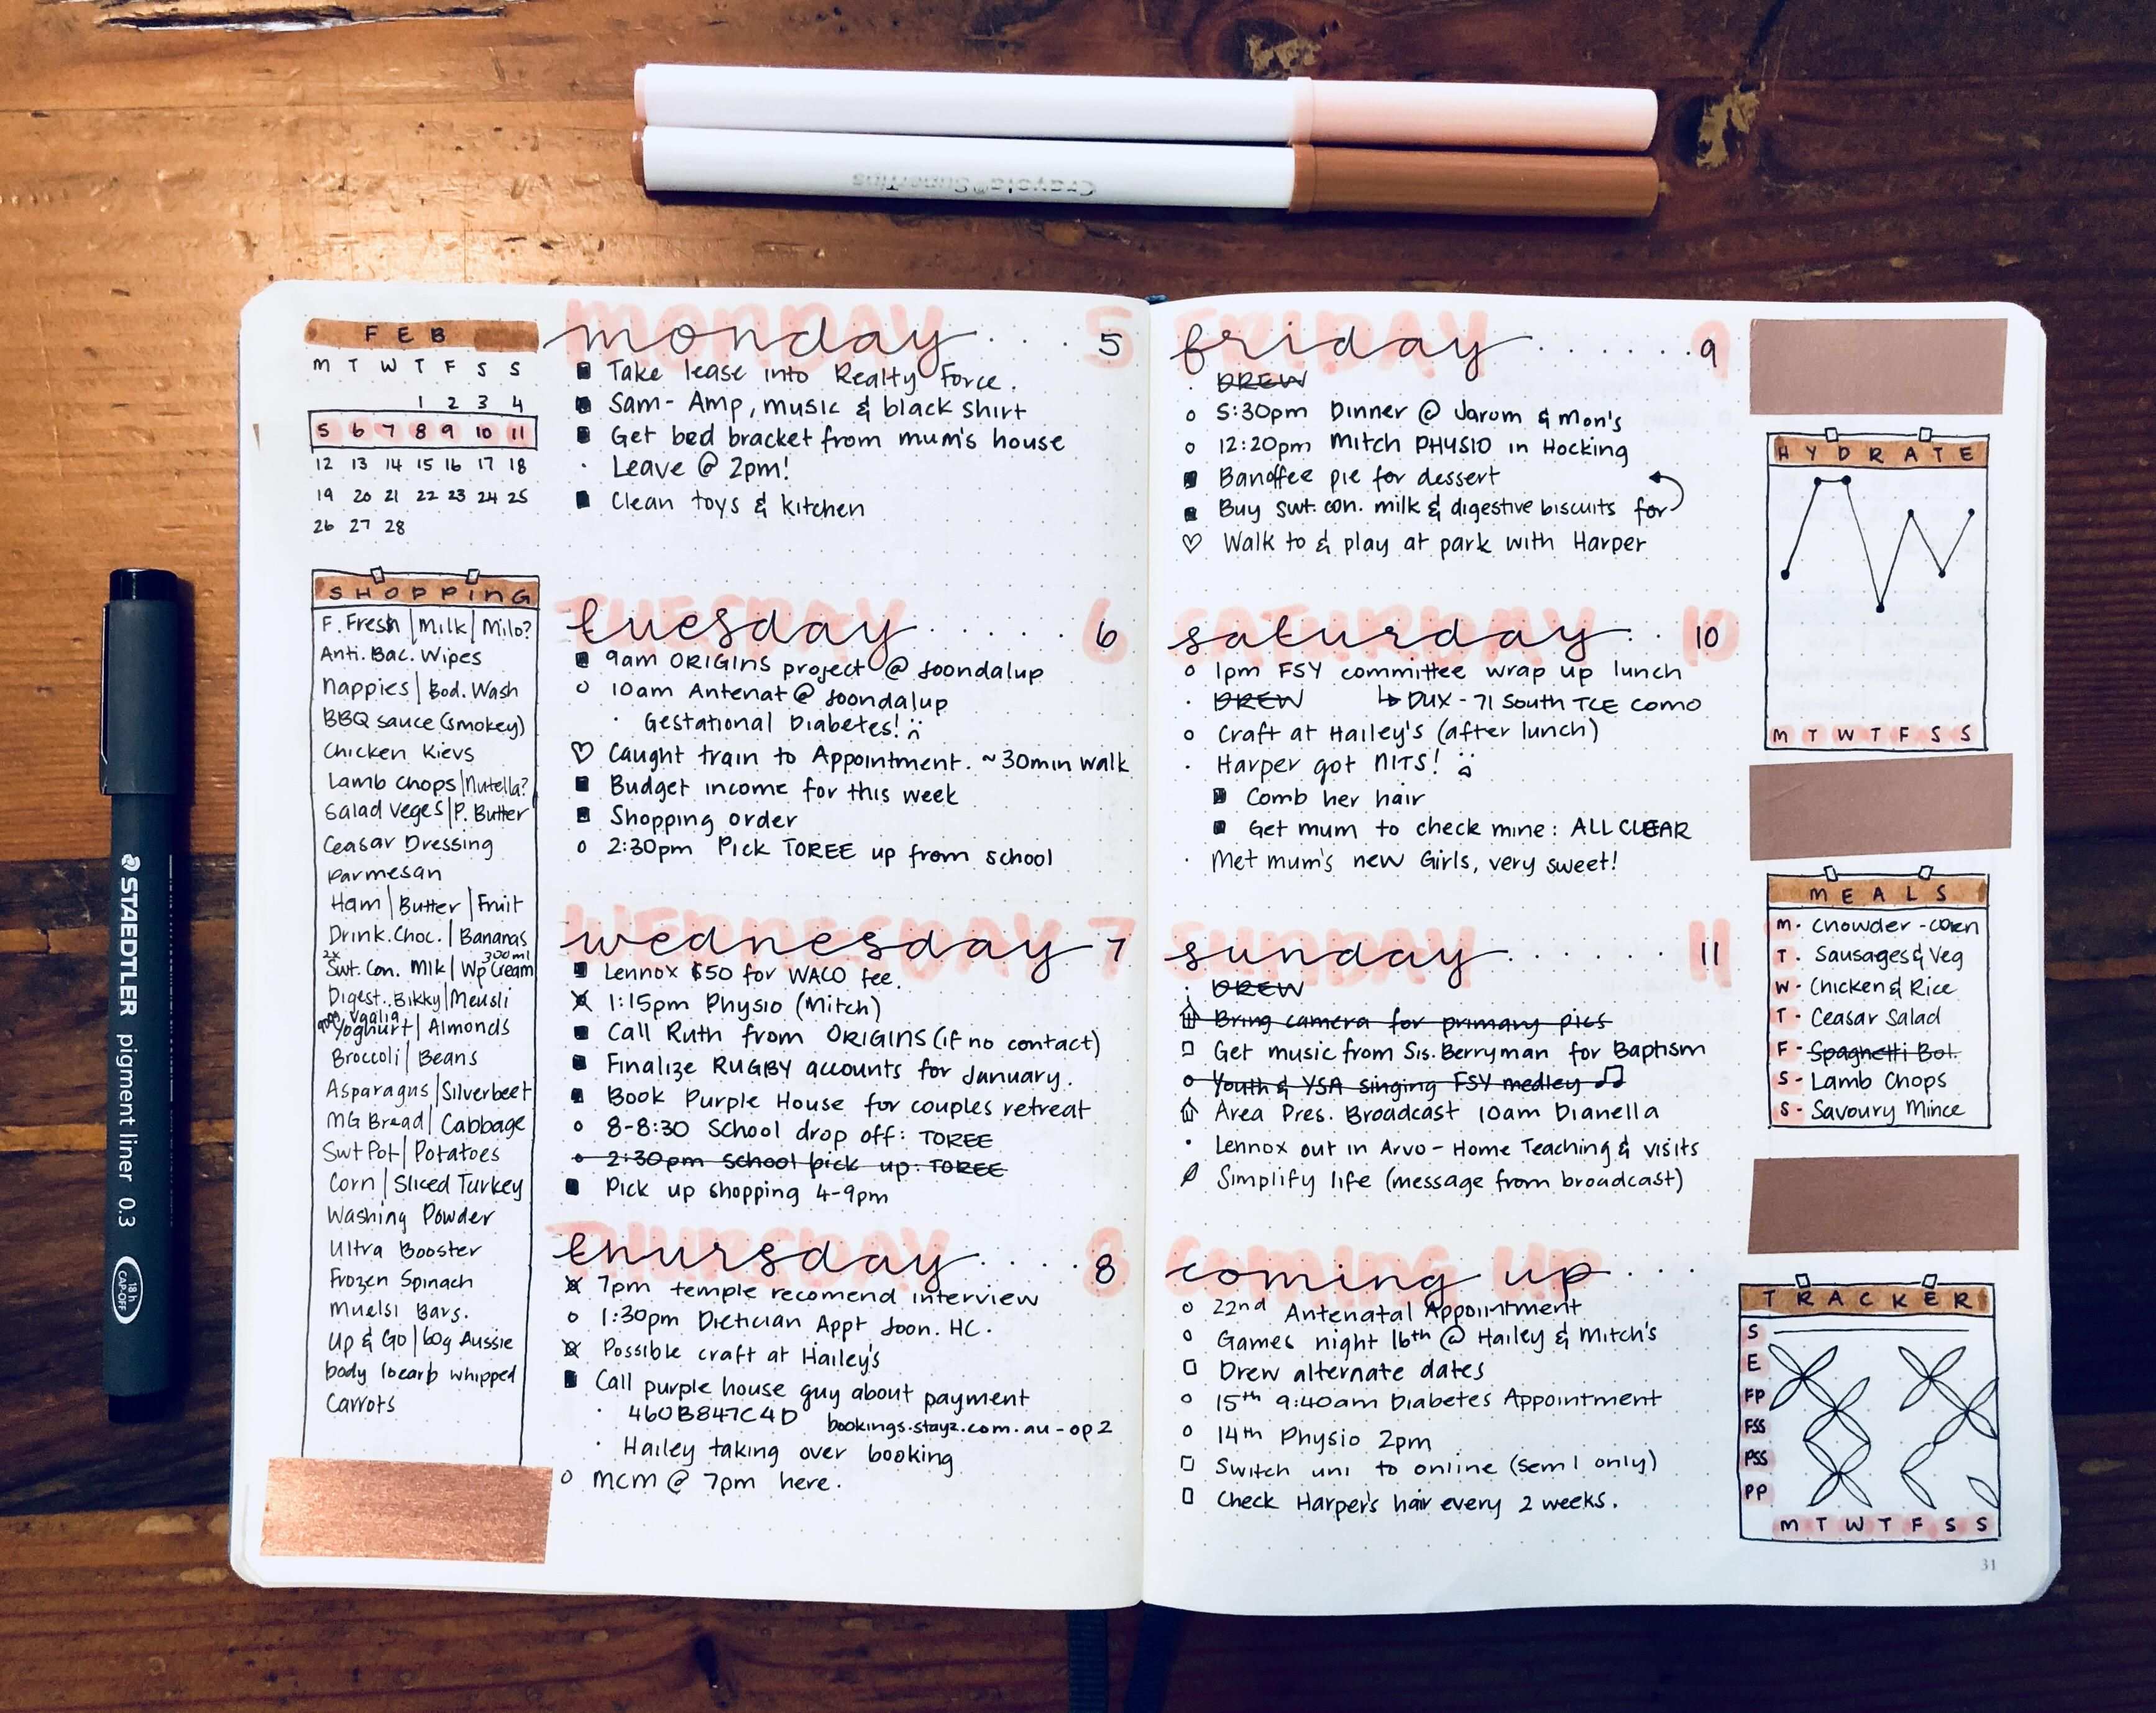 Crayola SuperTips
STAEDTLER pigment liner 0.3
18 h
CAP-OFF
FEB
M T W T F S S
1 2 3 4
5 6 7 8 9 10 11
12 13 14 15 16 17 18
19 20 21 22 23 24 25
26 27 28
SHOPPING
F. Fresh | Milk | Milo?
Anti. Bac. Wipes
Nappies | Bod. Wash
BBQ sauce (smokey)
Chicken Kievs
Lamb Chops | Nutella?
Salad Veges | P. Butter
Ceasar Dressing
Parmesan
Ham | Butter | Fruit
Drink. Choc. | Bananas
2x 300ml
Swt. Con. Mlk | Wp Cream
Digest. Bikky | Meusli
Vaalia
Yoghurt | Almonds
Broccoli | Beans
Asparagus | Silverbeet
MG Bread | Cabbage
Swt Pot | Potatoes
Corn | Sliced Turkey
Washing Powder
Ultra Booster
Frozen Spinach
Muelsi Bars.
Up & Go | 60g Aussie
body locarb whipped
Carrots
MONDAY
monday 5
Take lease into Realty Force.
Sam - Amp, music & black shirt
Get bed bracket from mum's house
Leave @ 2pm!
Clean toys & kitchen
TUESDAY
tuesday 6
9am ORIGINS project @ Joondalup
10am Antenat @ Joondalup
Gestational Diabetes! :(
♡ Caught train to Appointment. ~30min walk
Budget income for this week
Shopping order
2:30pm Pick TOREE up from school
WEDNESDAY
wednesday 7
Lennox $50 for WACO fee.
1:15pm Physio (Mitch)
Call Ruth from ORIGINS (if no contact)
Finalize RUGBY accounts for January.
Book Purple House for couples retreat
8-8:30 School drop off: TOREE
2:30pm School pick up: TOREE
Pick up shopping 4-9pm
THURSDAY
thursday 8
7pm temple recomend interview
1:30pm Dietician Appt Joon. HC.
Possible craft at Hailey's
Call purple house guy about payment
460B847C4D bookings.stayz.com.au-op2
Hailey taking over booking
MCM @ 7pm here.
FRIDAY
friday 9
DREW
5:30pm Dinner @ Jarom & Mon's
12:20pm Mitch PHYSIO in Hocking
Banoffee pie for dessert
Buy swt. con. milk & digestive biscuits for
♡ Walk to & play at park with Harper
SATURDAY
saturday 10
1pm FSY committee wrap up lunch
DREW ↳ DUX - 71 South TCE Como
Craft at Hailey's (after lunch)
Harper got NITS!
Comb her hair
Get mum to check mine: ALL CLEAR
Met mum's new Girls, very sweet!
SUNDAY
sunday 11
DREW
Bring camera for primary pics
Get music from Sis. Berryman for Baptism
Youth & YSA singing FSY medley
Area Pres. Broadcast 10am Dianella
Lennox out in Arvo - Home Teaching & visits
Simplify life (message from broadcast)
COMING UP
coming up
22nd Antenatal Appointment
Games night 16th @ Hailey & Mitch's
Drew alternate dates
15th 9:40am Diabetes Appointment
14th Physio 2pm
Switch uni to online (sem 1 only)
Check Harper's hair every 2 weeks.
HYDRATE
M T W T F S S
MEALS
M - Chowder - corn
T - Sausages & Veg
W - Chicken & Rice
T - Ceasar Salad
F - Spaghetti Bol.
S - Lamb Chops
S - Savoury Mince
TRACKER
S
E
FP
FSS
PSS
PP
M T W T F S S
31